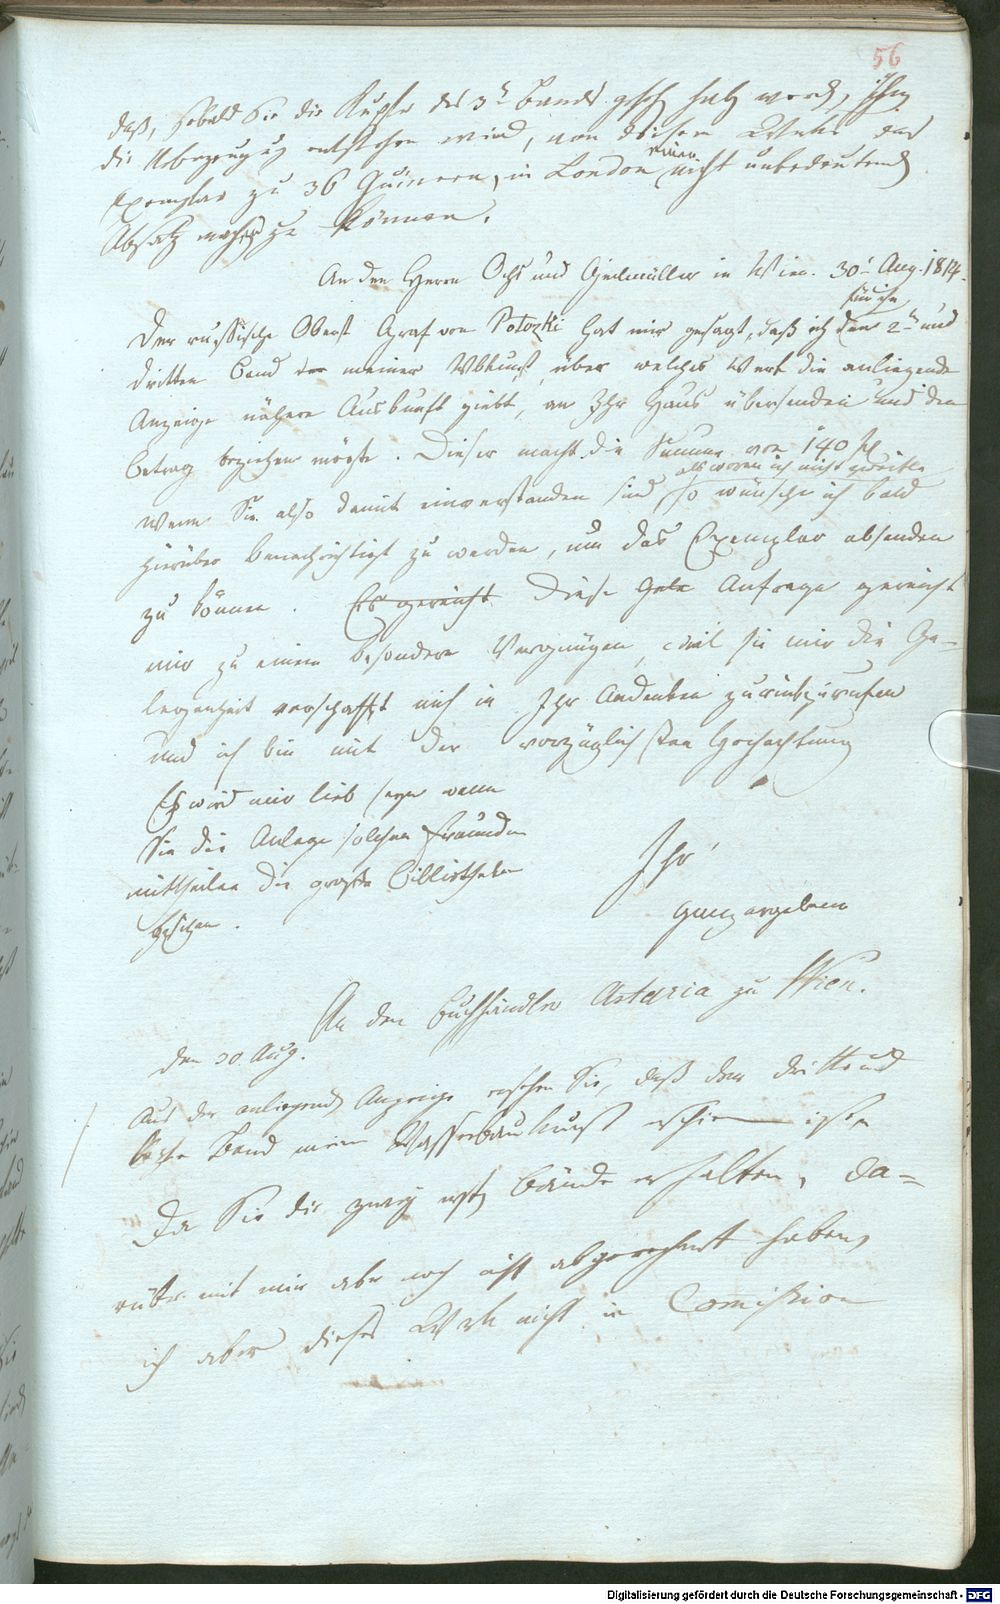 56
daß, sobald Sie die Kupfer des 3n Bandes gesehn haben werden, Ihnen
die Überzeugung entstehen wird, von diesem Werke das
Exemplar zu 36 Guineen, in London einen nicht unbedeutenden
Absatz machen zu können.
An den Herrn Ochs und Geilmüller in Wien. 30t Aug. 1814.
Der russische Oberst Graf von Potozki hat mir gesagt, daß ich für ihn den 2ten und
dritten Band meiner, über welches Werk die anliegende
Anzeige nähere Auskunft giebt, an Ihr Haus übersenden und den
Betrag beziehen möchte. Dieser macht die Summe von 140 fl
Wenn Sie also damit einverstanden sind als woran ich nicht zweifle so wünsche ich bald
hierüber benachrichtigt zu werden, um das Exemplar absenden
zu können. Es gereicht Diese Anfrage gereicht
mir zu einem besondern Vergnügen, weil sie mir die Ge-
legenheit verschafft mich in Ihr Andenken zurückzurufen
und ich bin mit der vorzüglichsten Hochachtung
Es wird mir lieb seyn wenn
Sie die Anlage solchen Freunden
mittheilen die große Bibliotheken
besitzen.
Ihr
ganz ergebner
An den Buchhändler Artaria zu Wien.
den 30. Aug.
Aus der anliegenden Anzeige ersehen Sie, daß der dritte und
letzte Band meiner Wasserbaukunst erschienen ist
Da Sie die zwey ersten Bände erhalten, da-
rüber mit mir aber noch nicht abgerechnet haben,
ich aber dieses Werk nicht in Comission
Digitalisierung gefördert durch die Deutsche Forschungsgemeinschaft - DFG